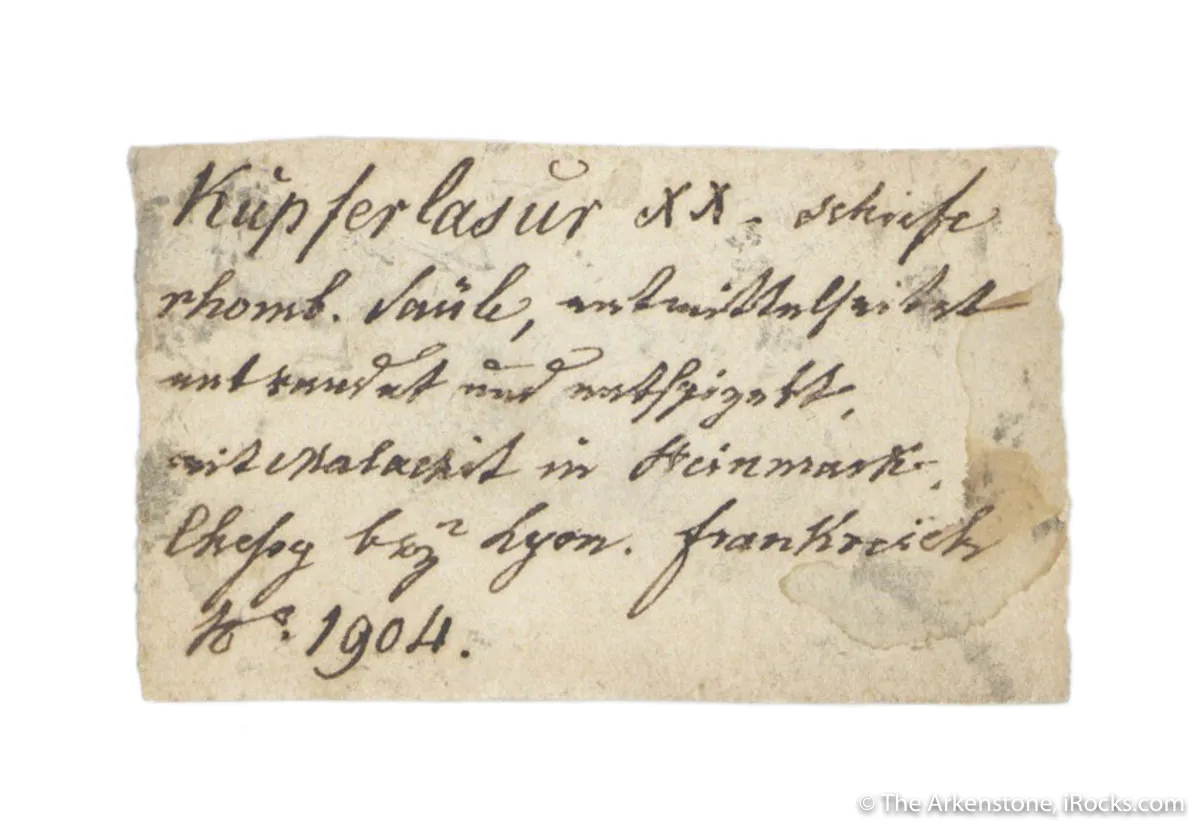 Kupferlasur XX - schiefe
rhomb. Säule, entmittelseitet
entrandet und entspizekt,
mit Malachit in Steinmark.
Chessy bey Lyon. Frankreich
No. 1904.
© The Arkenstone, iRocks.com